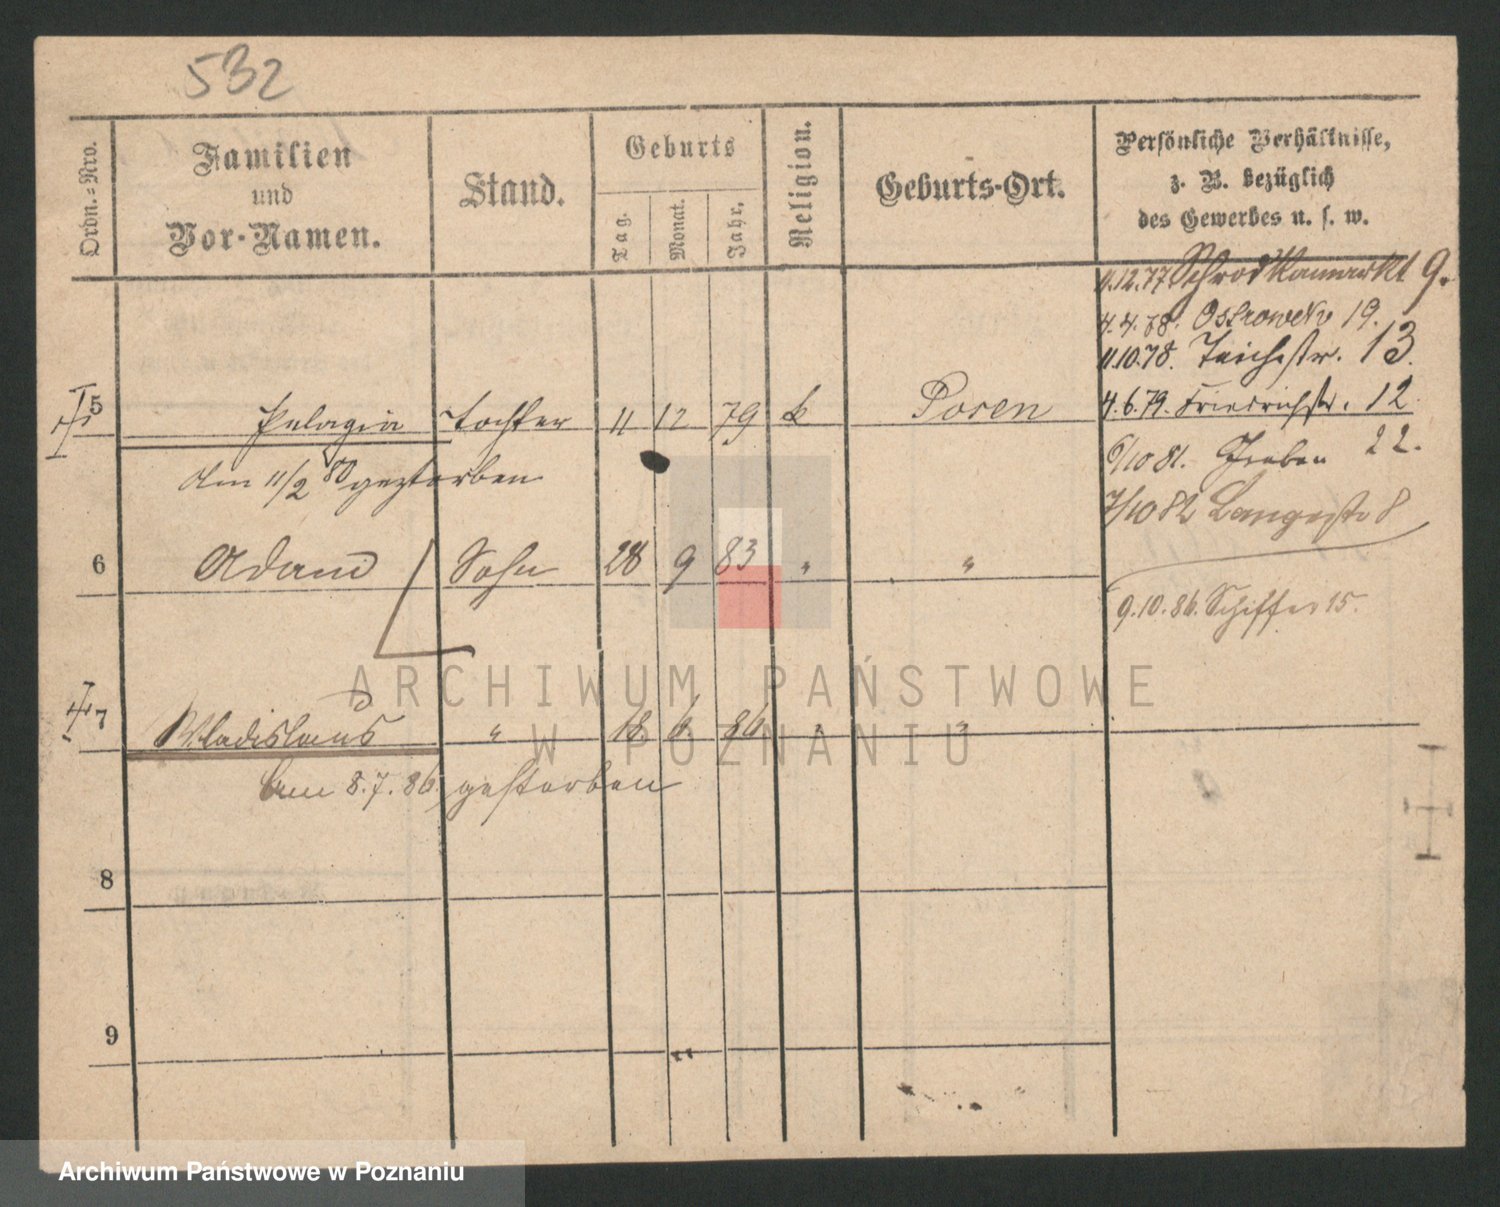 532
Ordn.=Nro.
Familien
und
Vor-Namen.
Stand.
Geburts
Tag.
Monat.
Jahr.
Religion.
Geburts-Ort.
Persönliche Verhältnisse,
z. B. bezüglich
des Gewerbes u. s. w.
11.12.77. Schrodkamarkt 9.
4.4.78. Ostrowek 19.
11.10.78. Teichstr. 13.
5 Pelagia Tochter 11 12 79 k Posen
4.6.79. Friedrichstr. 12
6/10 81. Graben 22.
Am 11/2 80 gestorben
7/10 82 Langestr 8
6 Adam Sohn 28 9 83 " "
9.10.86. Schiffer 15.
7 Wladislaus " 18 6 86 " "
am 8.7.86. gestorben
8
9
ARCHIWUM PAŃSTWOWE
W POZNANIU
Archiwum Państwowe w Poznaniu